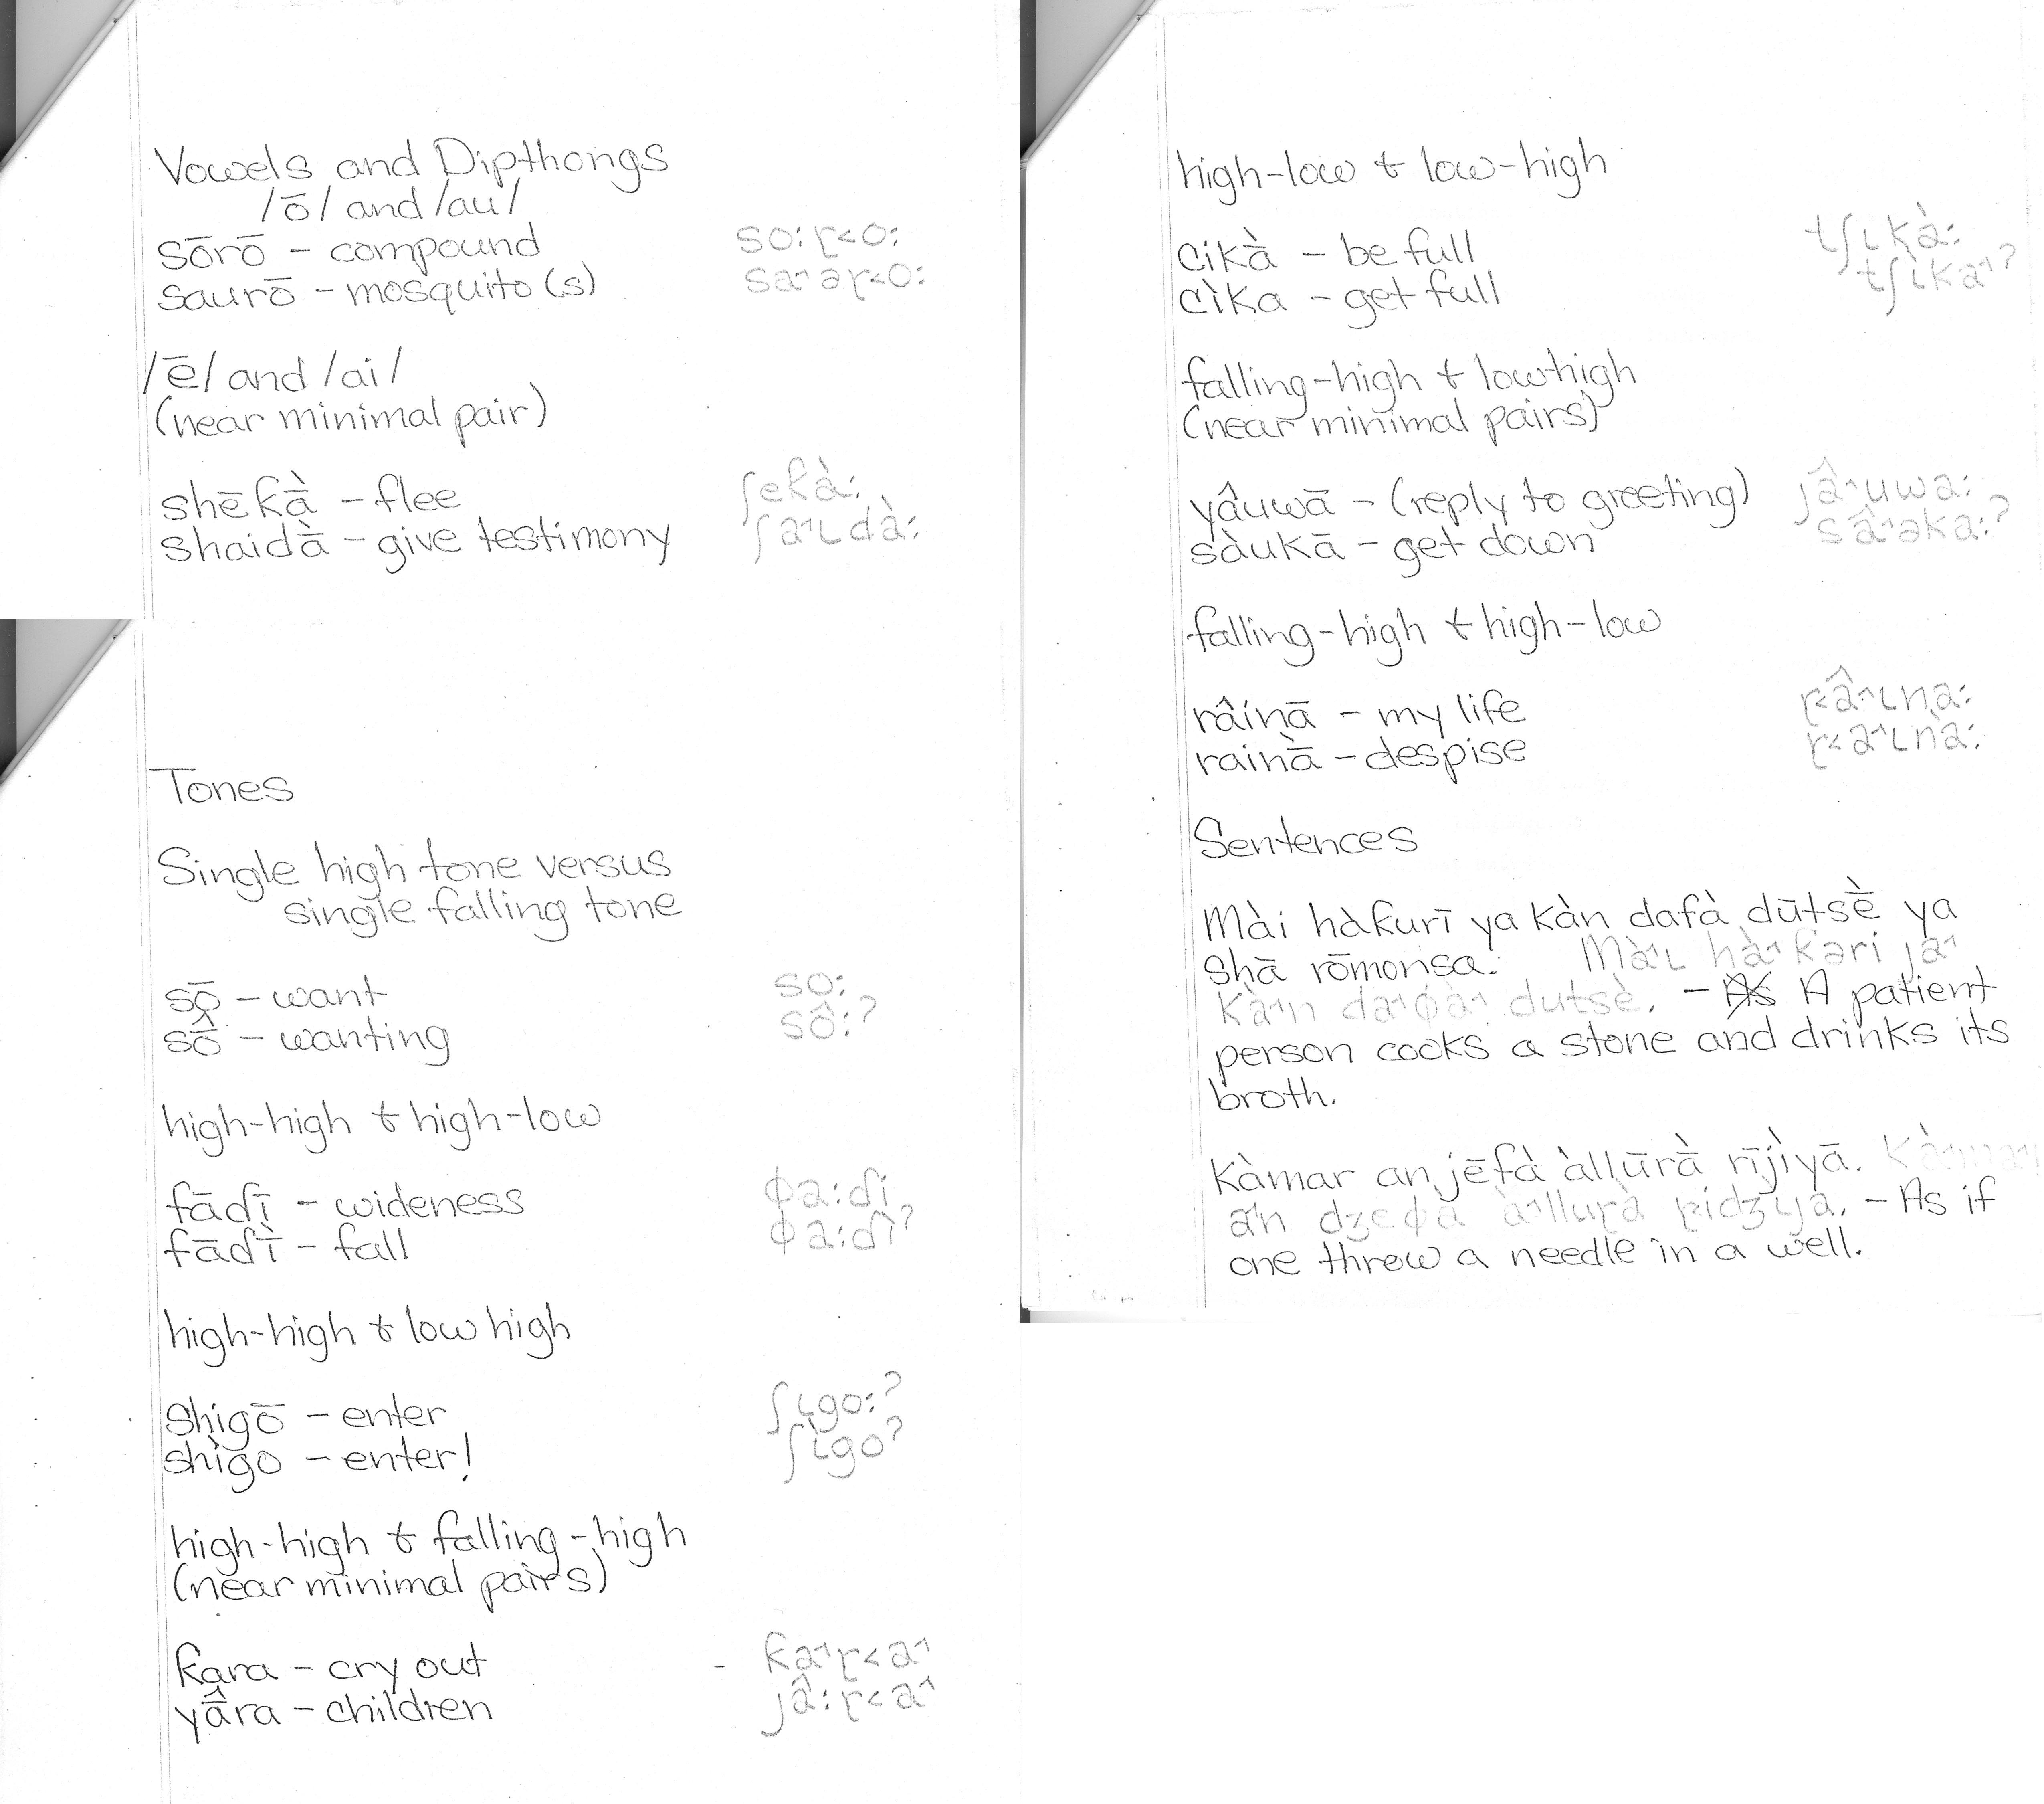 Vowels and Dipthongs
/ō/ and /au/
sōrō – compound so:ɽ<o:
saurō – mosquito (s) sa˄əɽ<o:
/ē/ and /ai/
(near minimal pair)
shēƙā̀ – flee ʃeƙà:
shaidā̀ – give testimony ʃa˄ɩdà:
Tones
Single high tone versus
single falling tone
sō – want so:
sō̂ – wanting sô:?
high-high & high-low
fādī – wideness ɸa:di
fādī̀ – fall ɸa:dì?
high-high & low high
shigō – enter ʃɩgo:?
shìgo – enter! ʃɩ̀go?
high-high & falling-high
(near minimal pairs)
ƙara – cry out - ƙa˄ɽ<a˄
yā̂ra – children jâ:ɽ<a˄
high-low & low-high
cikā̀ – be full tʃɩkà:
cìka – get full tʃɩ̀ka˄?
falling-high & lowhigh
(near minimal pairs)
yâuwā – (reply to greeting) jâ˄uwa:
sàukā – get down sâ˄əka:?
falling-high & high-low
râinā – my life ɽ<â˄ɩna:
rainā̀ – despise ɽ<a˄ɩnà:
Sentences
Mài hàƙurī ya kàn dafà dūtsḕ ya
shā rōmonsa. Mà˄ɩ hà˄ƙəri ja˄
kà˄n da˄ɸà˄ dutsè. – A patient
person cooks a stone and drinks its
broth.
Kàmar an jēfà àllūrā̀ rījìyā.
a˄n dʒeɸà à˄lluɽà ɽidʒìya. – As if
one threw a needle in a well.